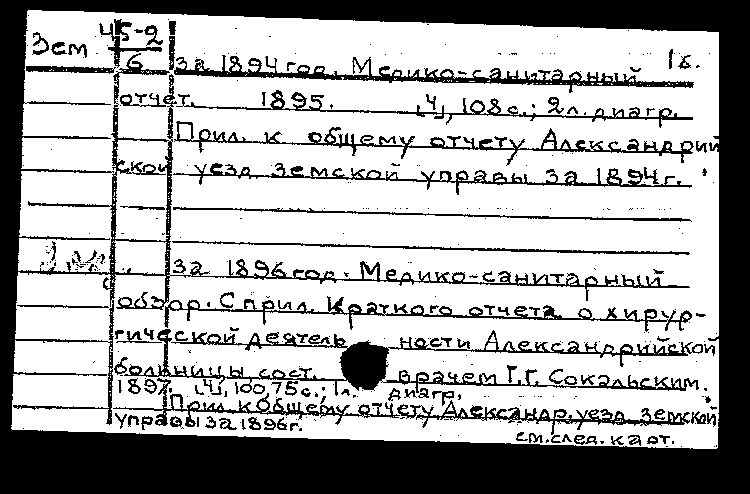 Зем 45-2 1б.
6 за 1894 год. Медико-санитарный
отчет. 1895. [4], 108 с.; 2 л. диагр.
Прил. к общему отчету Александрий
ской уезд земской управы за 1894 г.
за 1896 год. Медико-санитарный
обзор. С прил. Краткого отчета о хирур-
гической деятель ности Александрийской
больницы, сост. врачем Г.Г. Сокальским.
1897. [4], 100, 75 с.; 1 л. диагр.
Прил. к Общему отчету Александр. уезд. земской
управы за 1896 г.
см. след. карт.